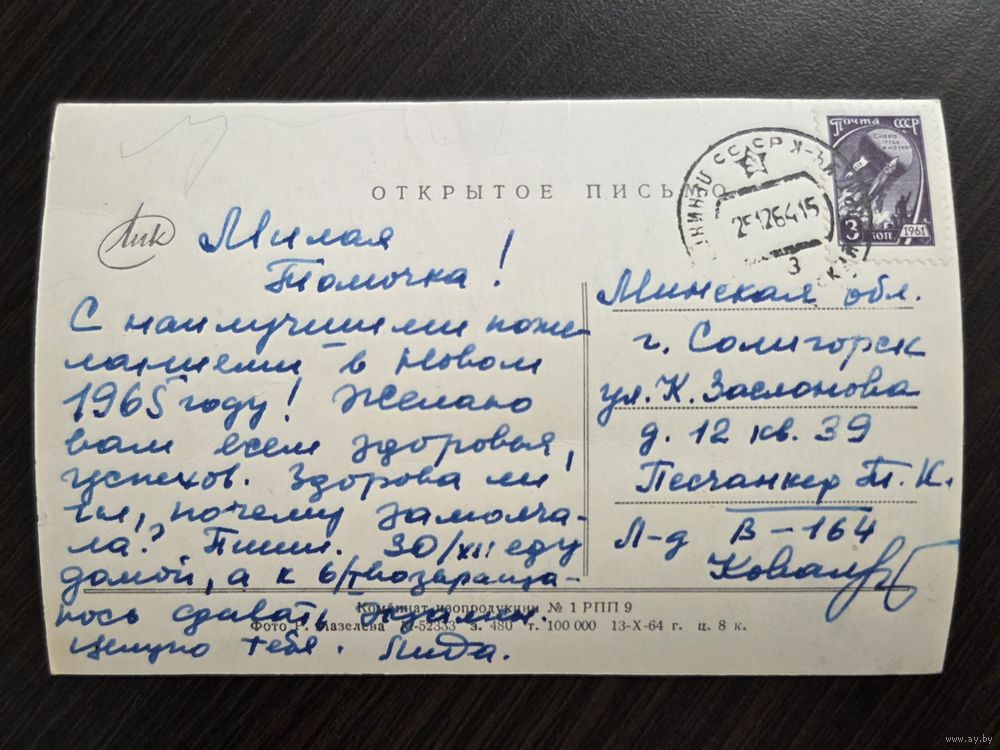 ОТКРЫТОЕ ПИСЬМО
Почта СССР
Слава
труду
и науке
3 коп.
1961
25126415
3
Лик
Милая
Томочка!
С наилучшими поже
ланиями в Новом
1965 году! Желаю
вам всем здоровья,
успехов. Здорова ли
ты, почему замолча-
ла? Пиши. 30/XII еду
домой, а к 6/I возвраща-
юсь сдавать экзамен.
Целую тебя. Лида.
Минская обл.
г. Солигорск
ул. К. Заслонова
д. 12 кв. 39
Песчанкер Т. К.
Л-д В-164
Комбинат изопродукции № 1 РПП 9
Фото Г. Мазелева М-52333 з. 480 т. 100 000 13-X-64 г. ц. 8 к.
www.ay.by